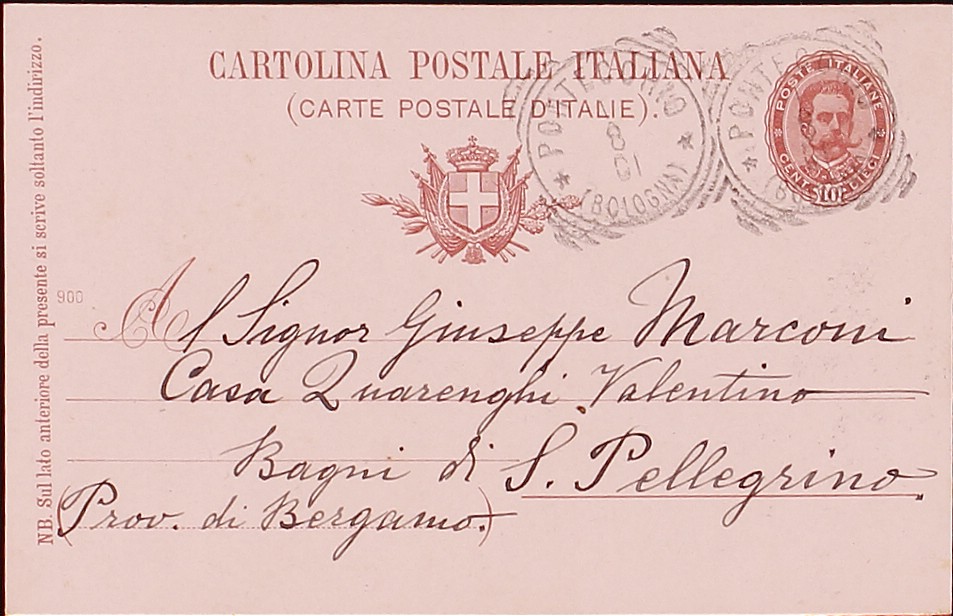 CARTOLINA POSTALE ITALIANA
(CARTE POSTALE D'ITALIE).
NB. Sul lato anteriore della presente si scrive soltanto l'indirizzo.
POSTE ITALIANE
CENT. 10 DIECI
PONTECCHIO
8
01
(BOLOGNA)
900
Al Signor Giuseppe Marconi
Casa Quarenghi Valentino
Bagni di S. Pellegrino
(Prov. di Bergamo.)